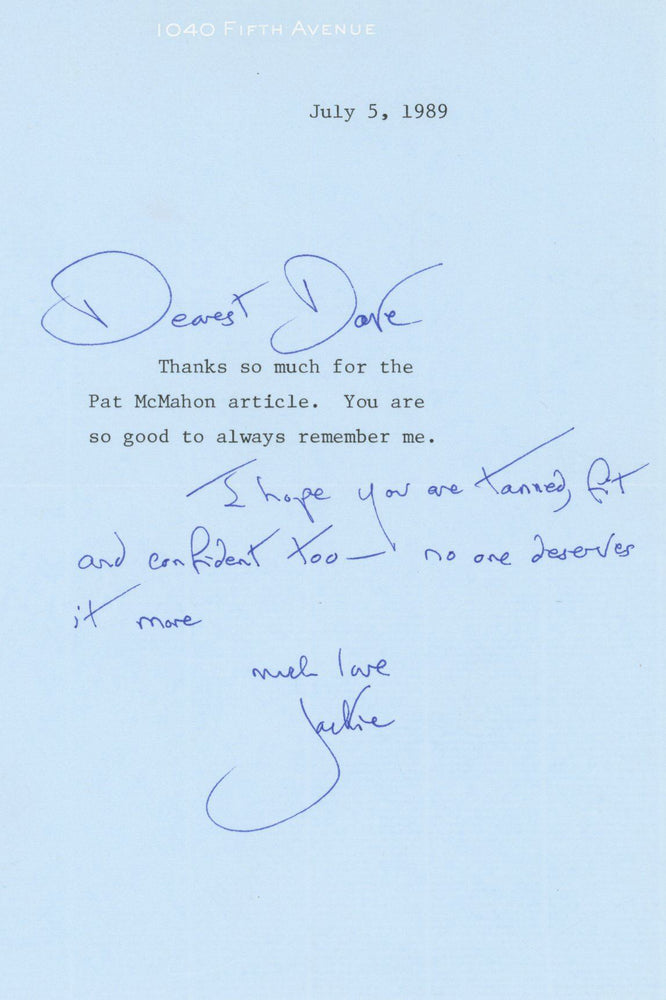 1040 FIFTH AVENUE
July 5, 1989
Dearest Dave
Thanks so much for the
Pat McMahon article. You are
so good to always remember me.
I hope you are tanned, fit
and confident too— no one deserves
it more
much love
Jackie